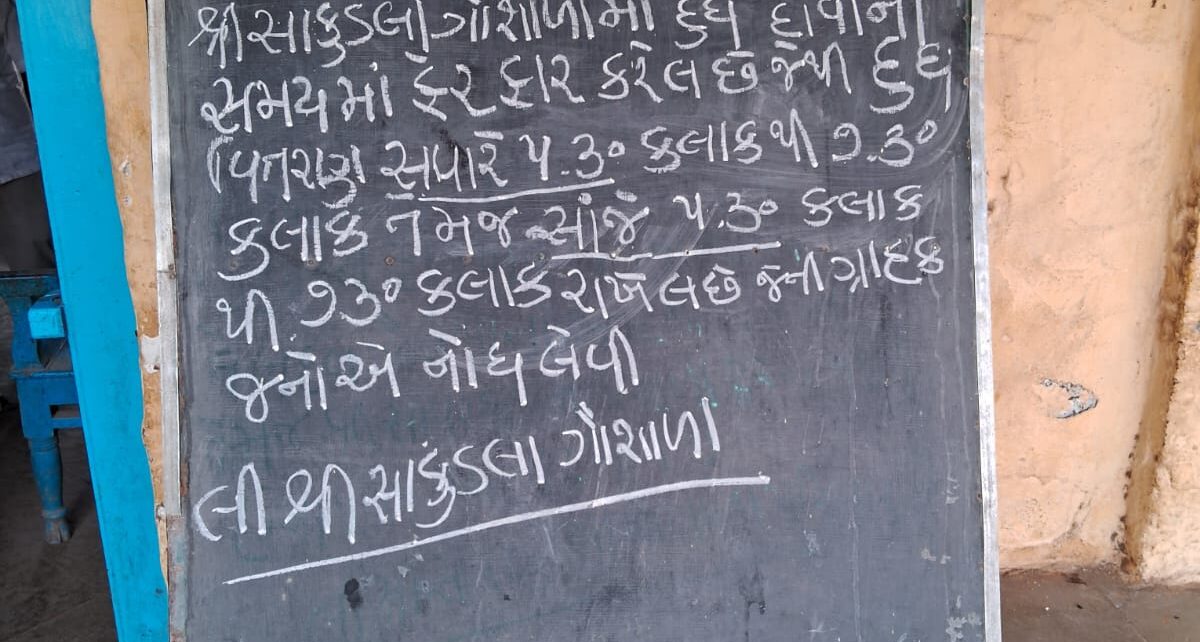 શ્રી સાકુંડલા ગૌશાળામાં દુધ દોવાના
સમયમાં ફેરફાર કરેલ છે જેથી દુધ
વિતરણ સવારે ૫.૩૦ કલાક થી ૭.૩૦
કલાક તેમજ સાંજે ૫.૩૦ કલાક
થી ૭૩૦ કલાક રાખેલ છે જેની ગ્રાહક
જનોએ નોધ લેવી
લી શ્રી સાકુંડલા ગૌશાળા